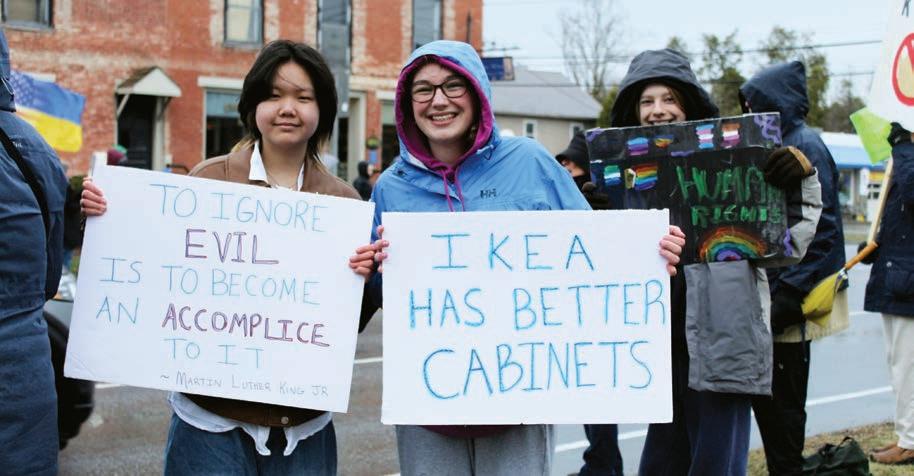 TO IGNORE
EVIL
IS TO BECOME
AN ACCOMPLICE
TO IT
~ MARTIN LUTHER KING JR
IKEA
HAS BETTER
CABINETS
HH
HUMAN
RIGHTS